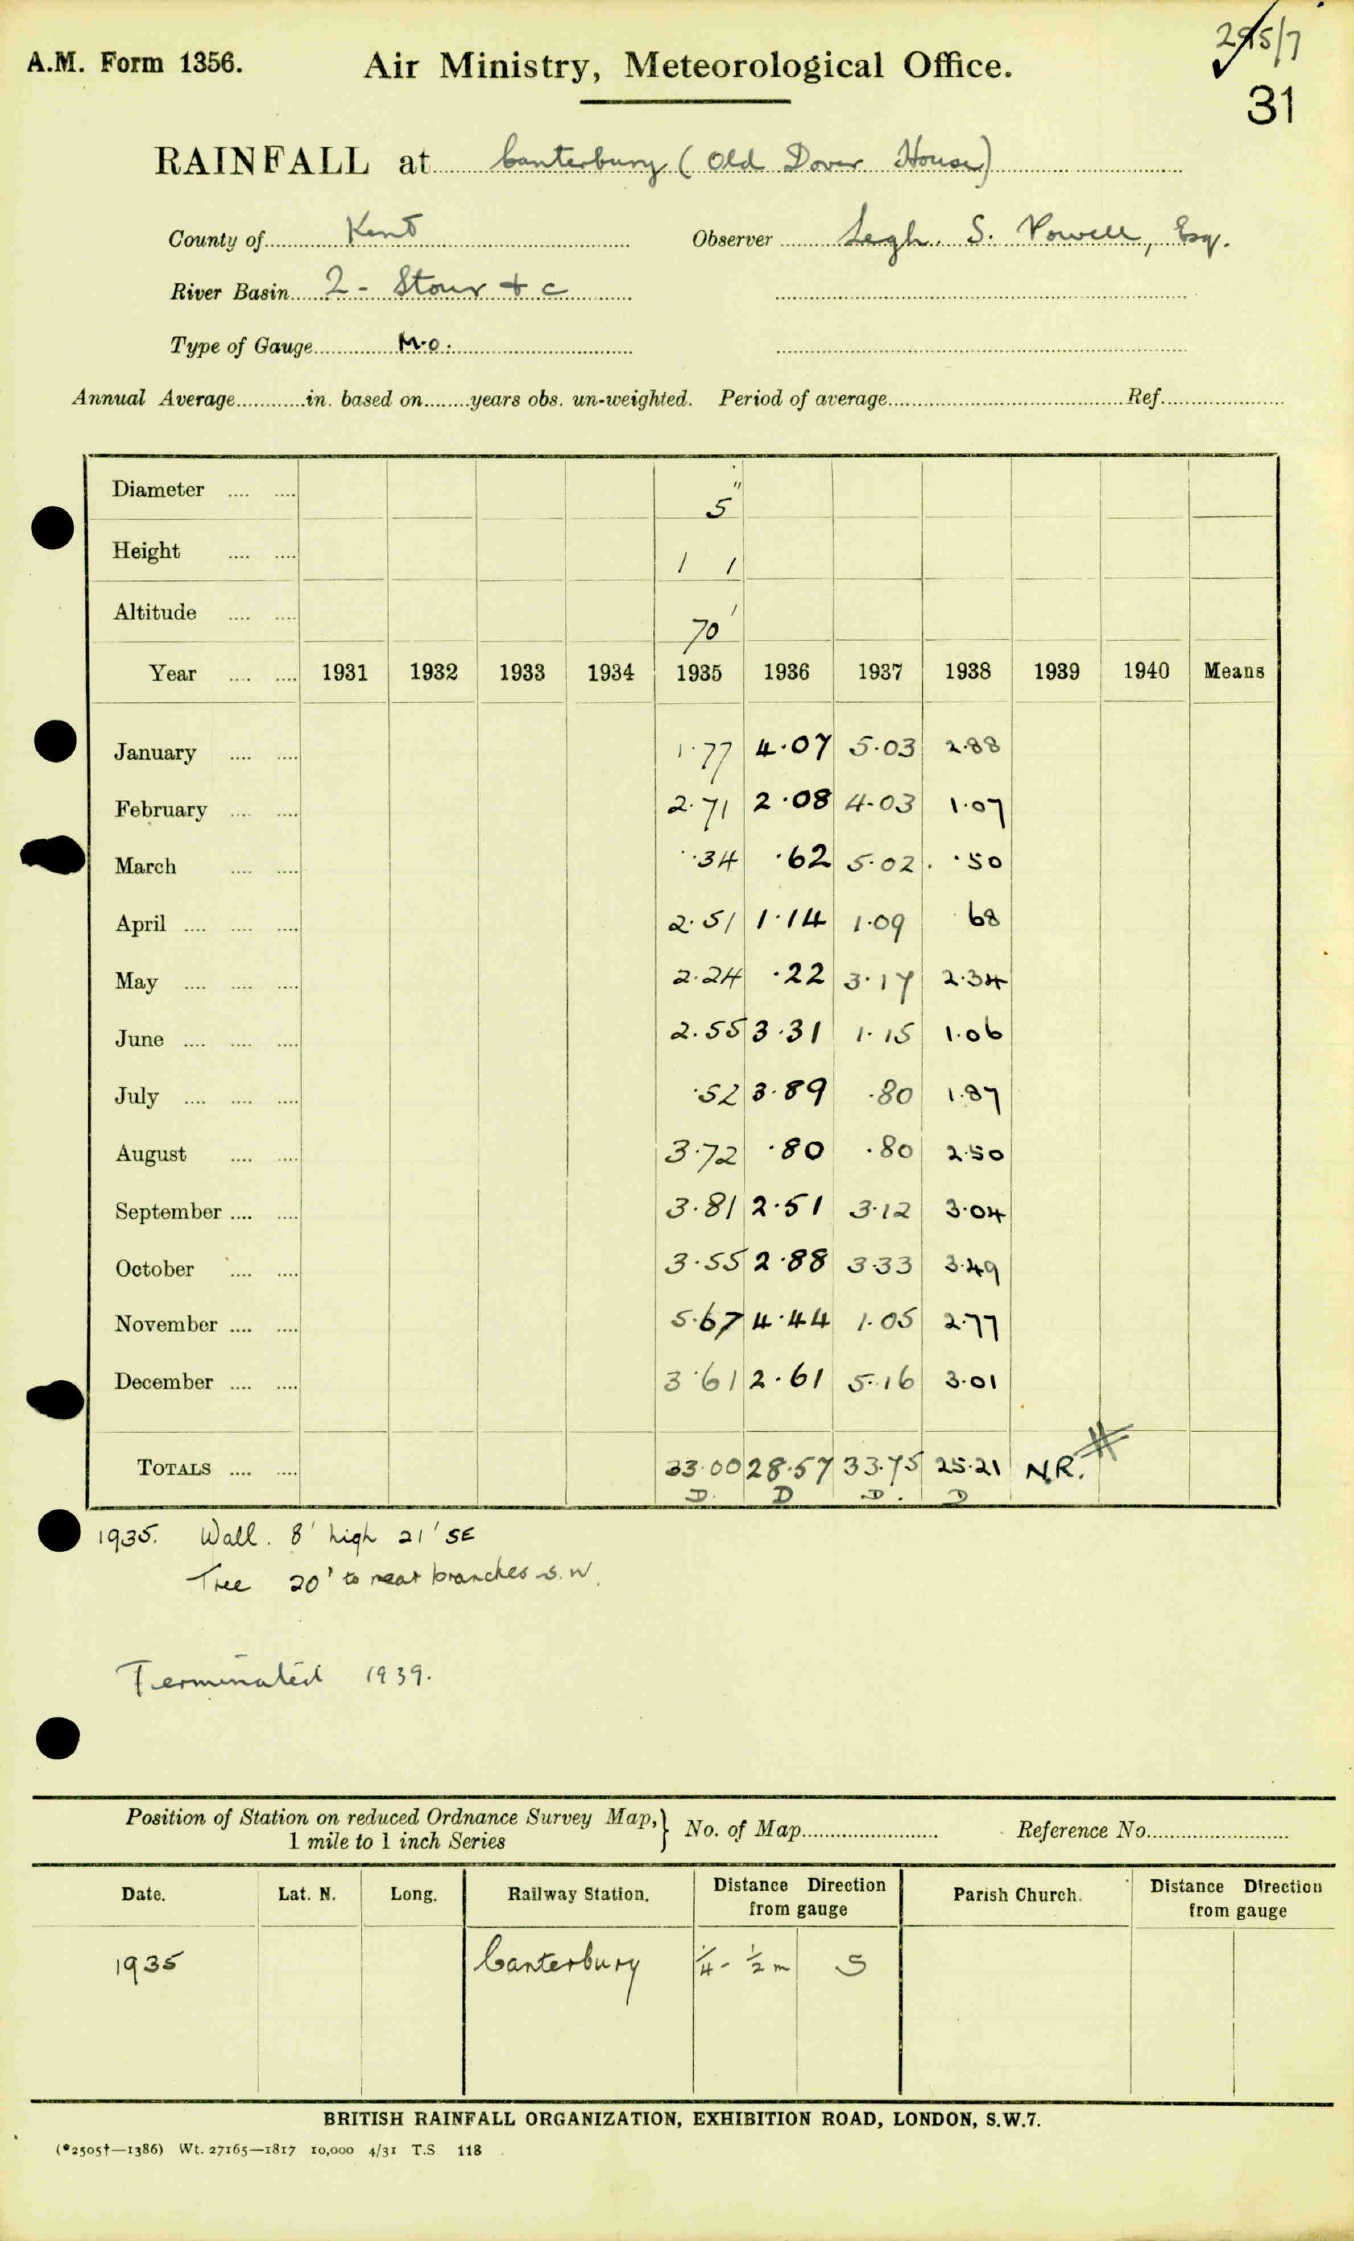 295/7
A.M. Form 1356. Air Ministry, Meteorological Office.
31
RAINFALL at Canterbury (Old Dover House)
County of Kent Observer Legh. S. Powell, Esq.
River Basin 2 - Stour + c
Type of Gauge M.O.
Annual Average in. based on years obs. un-weighted. Period of average Ref.
Diameter 5"
Height 1 1
Altitude 70'
Year 1931 1932 1933 1934 1935 1936 1937 1938 1939 1940 Means
January 1.77 4.07 5.03 2.88
February 2.71 2.08 4.03 1.07
March .34 .62 5.02 .50
April 2.51 1.14 1.09 68
May 2.24 .22 3.17 2.34
June 2.55 3.31 1.15 1.06
July .52 3.89 .80 1.87
August 3.72 .80 .80 2.50
September 3.81 2.51 3.12 3.04
October 3.55 2.88 3.33 3.49
November 5.67 4.44 1.05 2.77
December 3.61 2.61 5.16 3.01
TOTALS 33.00 28.57 33.75 25.21 N.R.
D. D D. D
1935. Wall. 8' high 21' SE
Tree 20' to near branches S.W.
Terminated 1939.
Position of Station on reduced Ordnance Survey Map, 1 mile to 1 inch Series } No. of Map Reference No.
Date. Lat. N. Long. Railway Station. Distance Direction from gauge Parish Church. Distance Direction from gauge
1935 Canterbury 1/4 - 1/2 m S
BRITISH RAINFALL ORGANIZATION, EXHIBITION ROAD, LONDON, S.W.7.
(*2505†—1386) Wt. 27165—1817 10,000 4/31 T.S 118